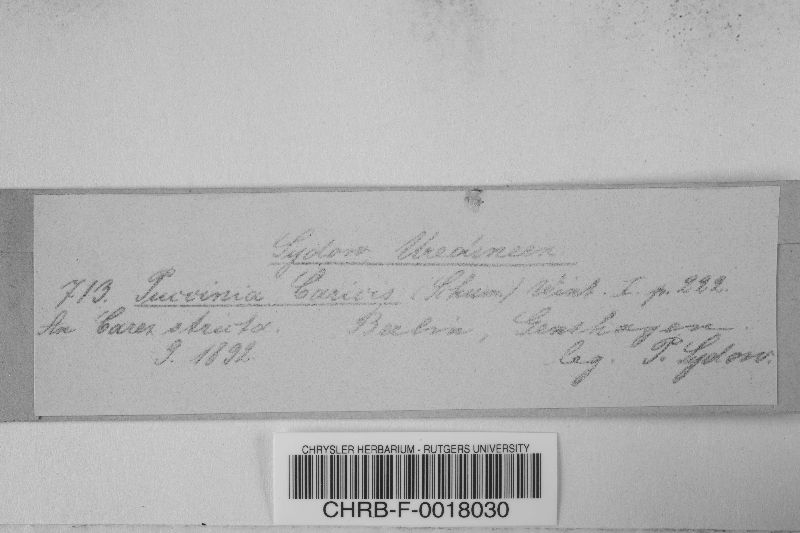 Sydow Uredineen
713. Puccinia Caricis (Schum.) Wint. I. p. 222.
An Carex stricta. Berlin, Genshagen.
9. 1892 leg. P. Sydow.
CHRYSLER HERBARIUM - RUTGERS UNIVERSITY
CHRB-F-0018030